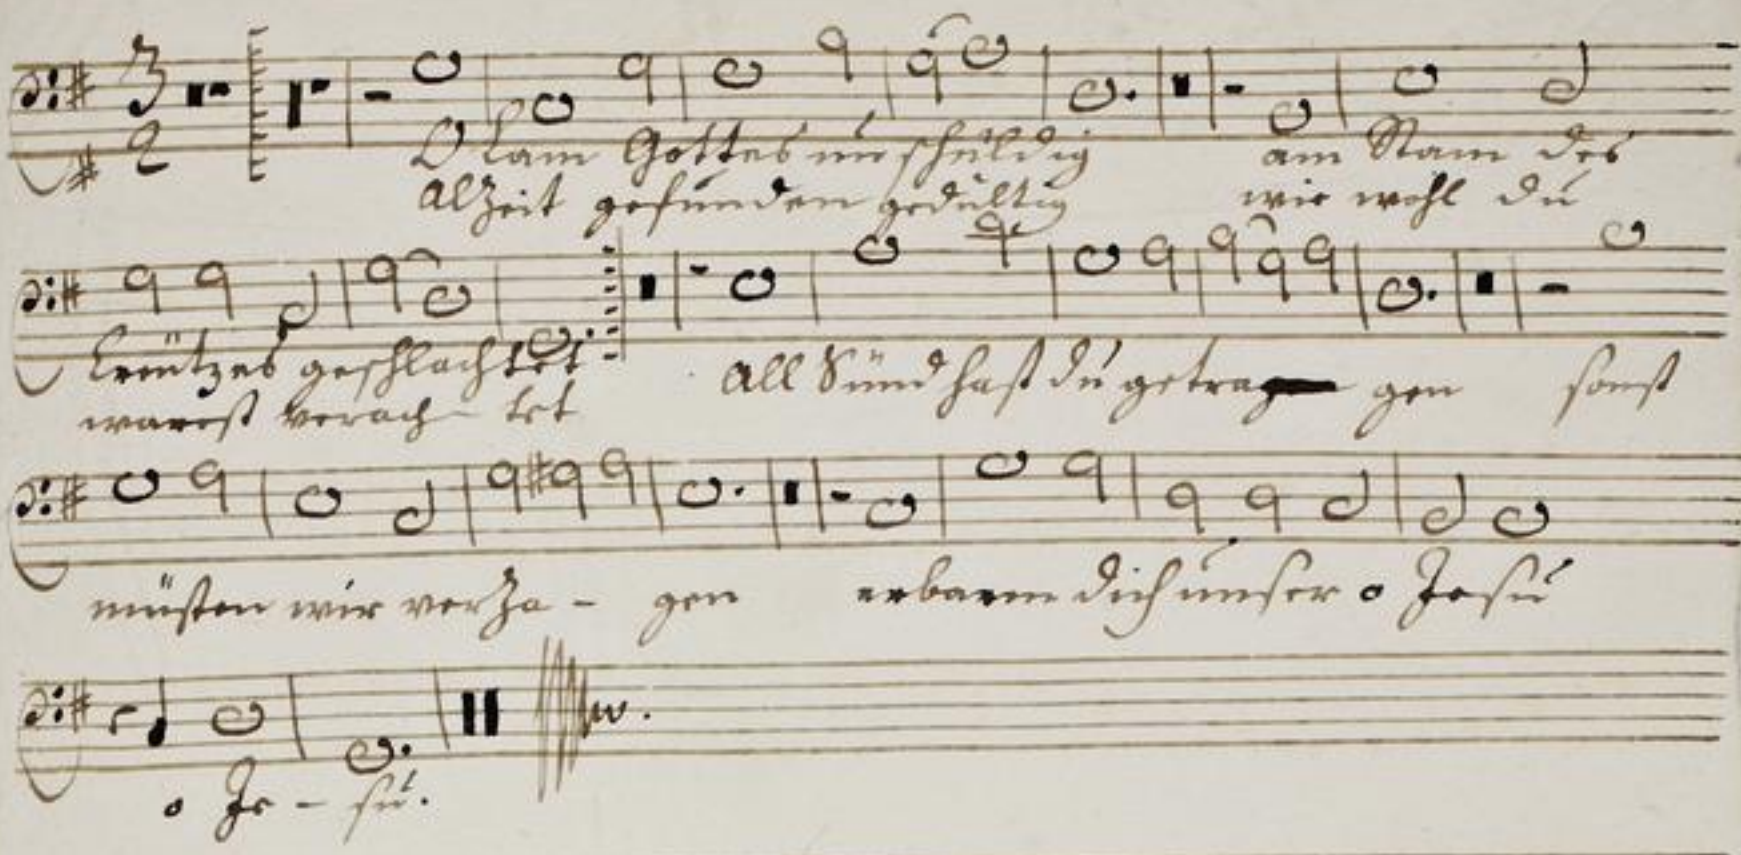 3
2
O Lam Gottes unschuldig am Stam des
Alzeit gefunden gedultig wie wohl du
Creützes geschlachtet All Sünd hast du getra gen sonst
warest verach- tet
müsten wir verza- gen erbarm dich unser o Jesu
o Je - su.